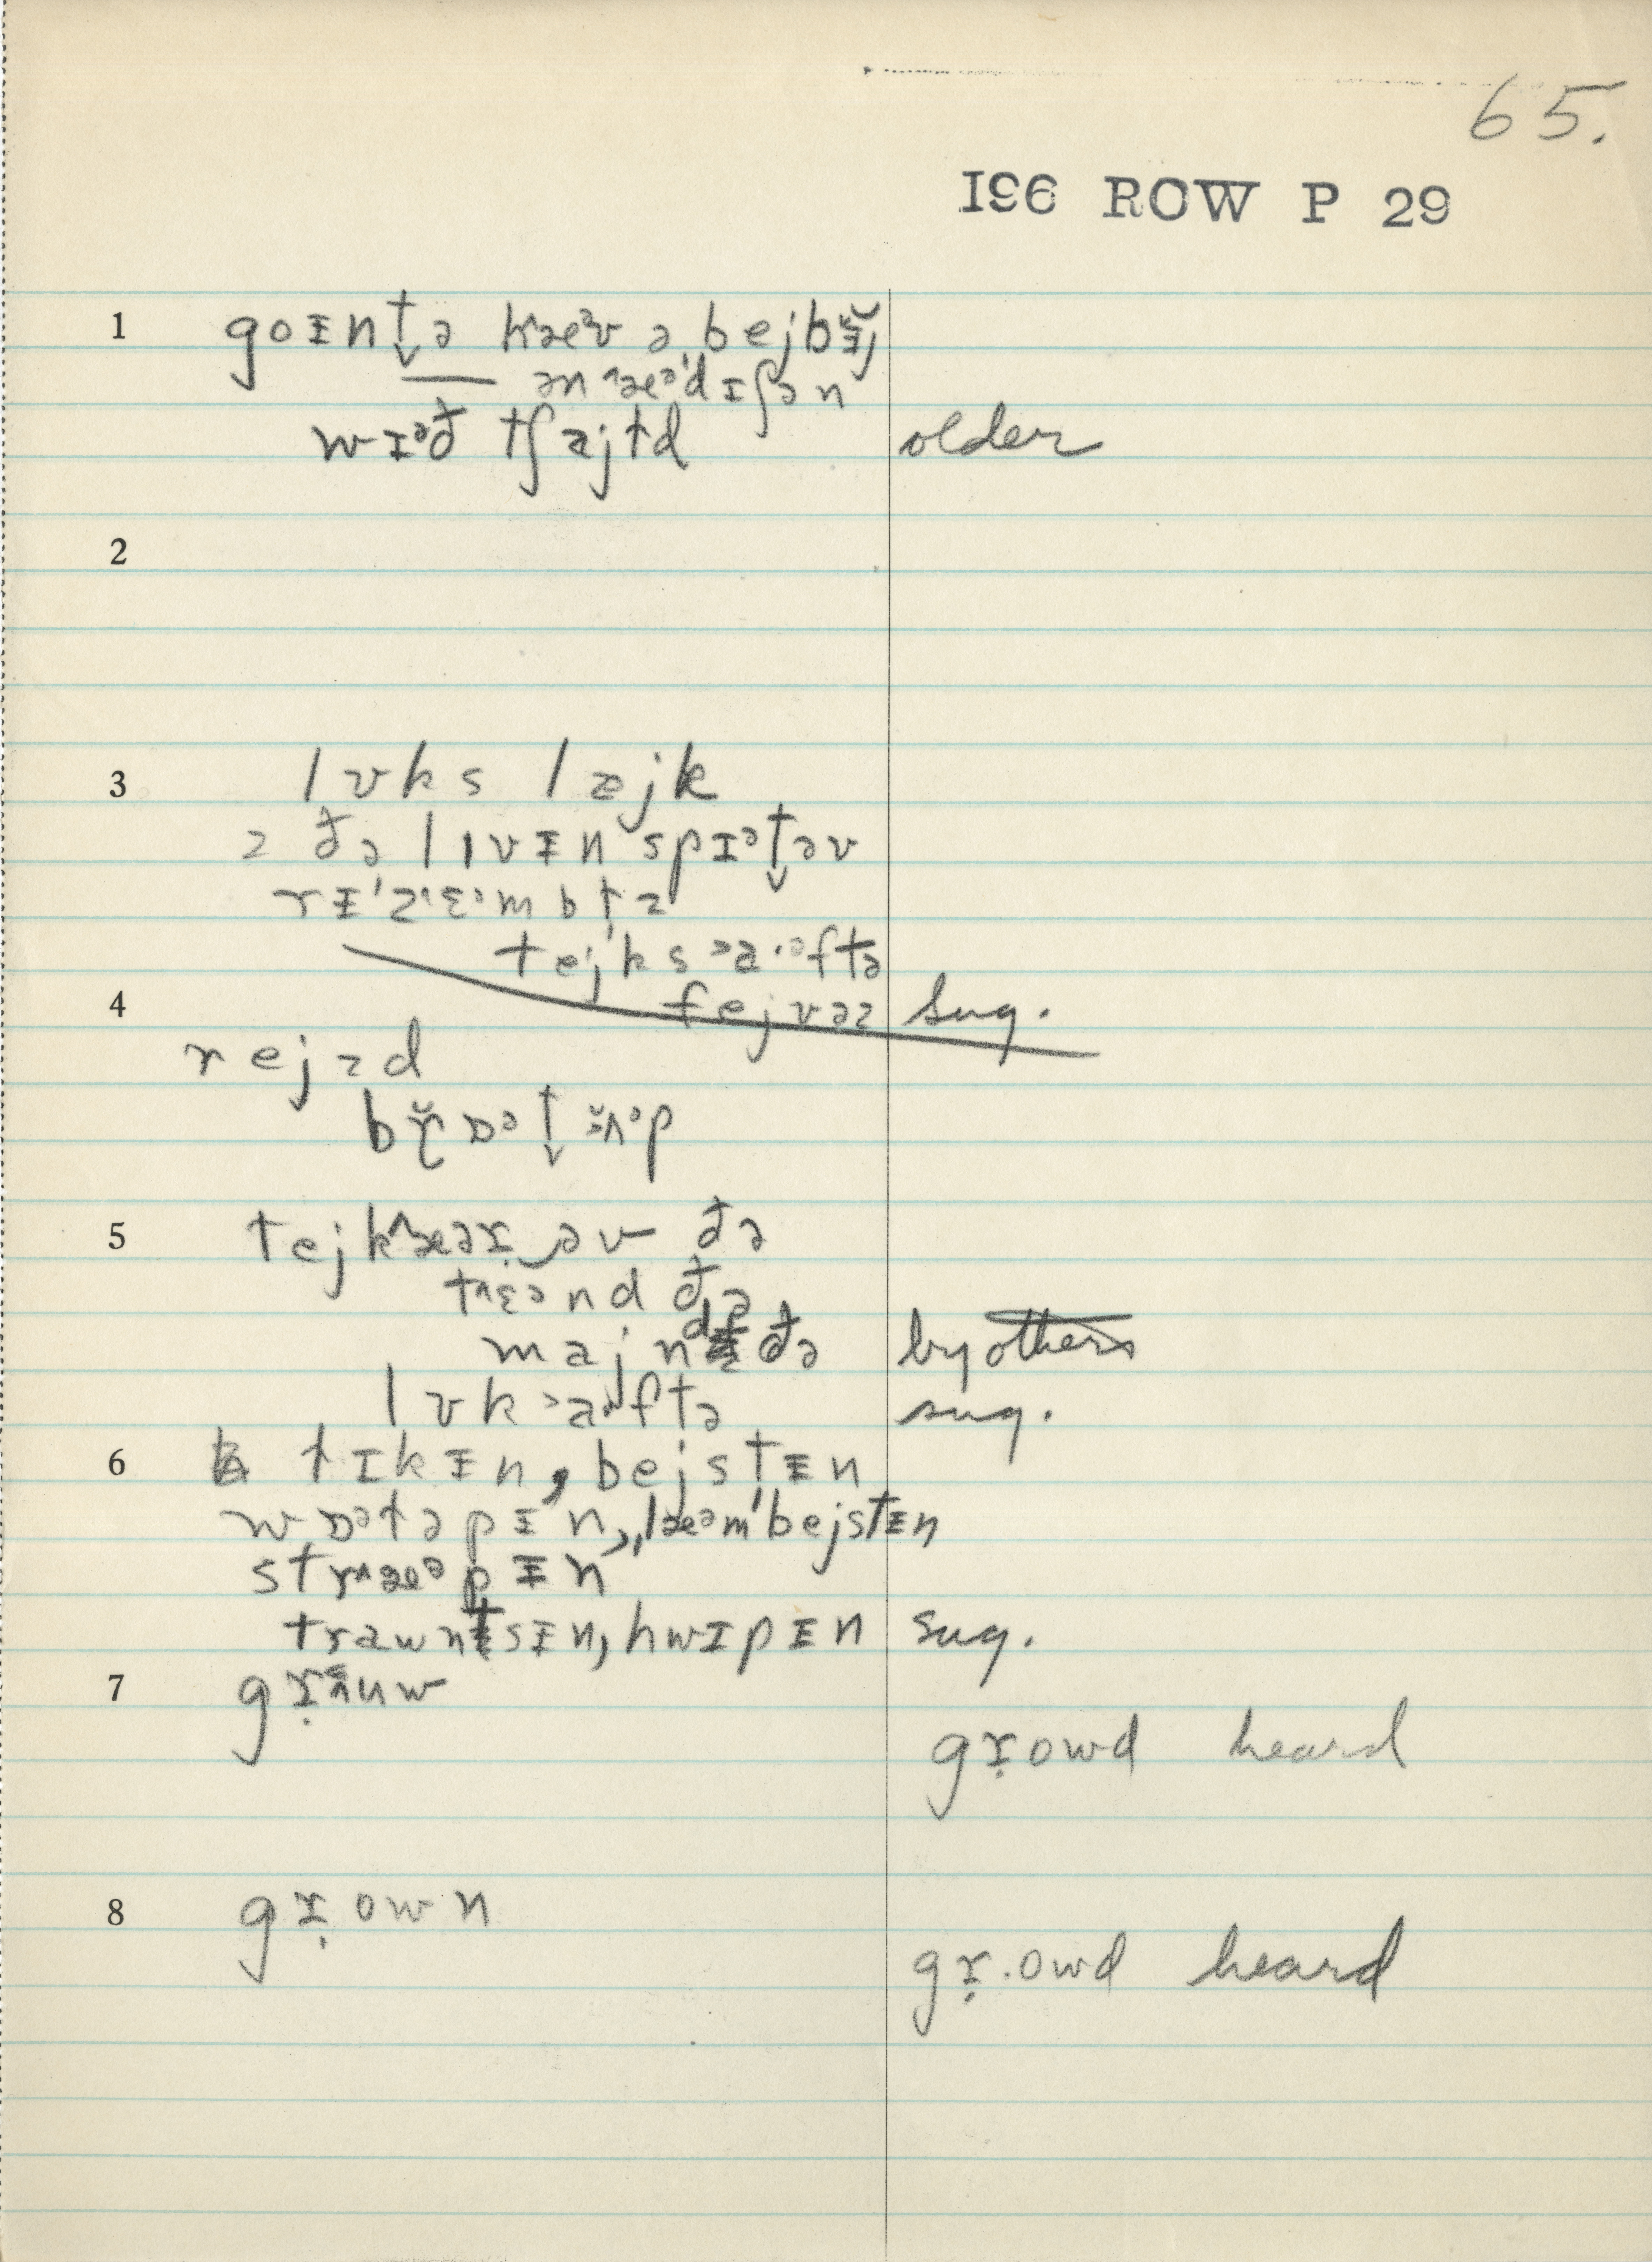 65.
196 ROW P 29
1 goᵻnt̬ə hæᵊv ə bejbᵻ̆j
— ən ˈæᵊˈdɪʃən
wɪᵊð tʃajɫd older
2
3 lʊks lajk
ðə lɪvᵻn spɪᵊt̬əv
rᵻˈzɛᵊmbɫz
tejks ɑftə
4 fejvəz sug.
rejzd
brɒᵊt̬ ʌᵊp
5 tejk kæəɹ əv ðə
tɛənd ðə
majnd ðə by others
lʊk aftə sug.
6 ɫɪkᵻn, bejstᵻn
wɒᵊɫəpᵻn, læᵊmˈbejstᵻn
stræᵊpᵻn
trawnsᵻn, hwɪpᵻn sug.
7 gɹ̣ʉw
gɹ̣owd heard
8 gɹ̣own
gɹ̣.owd heard